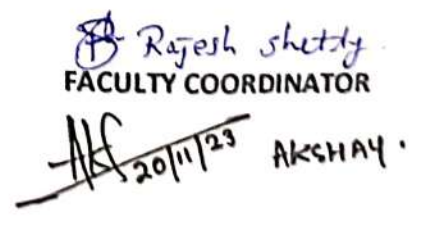 Rajesh shetty
FACULTY COORDINATOR
20/11/23 AKSHAY.